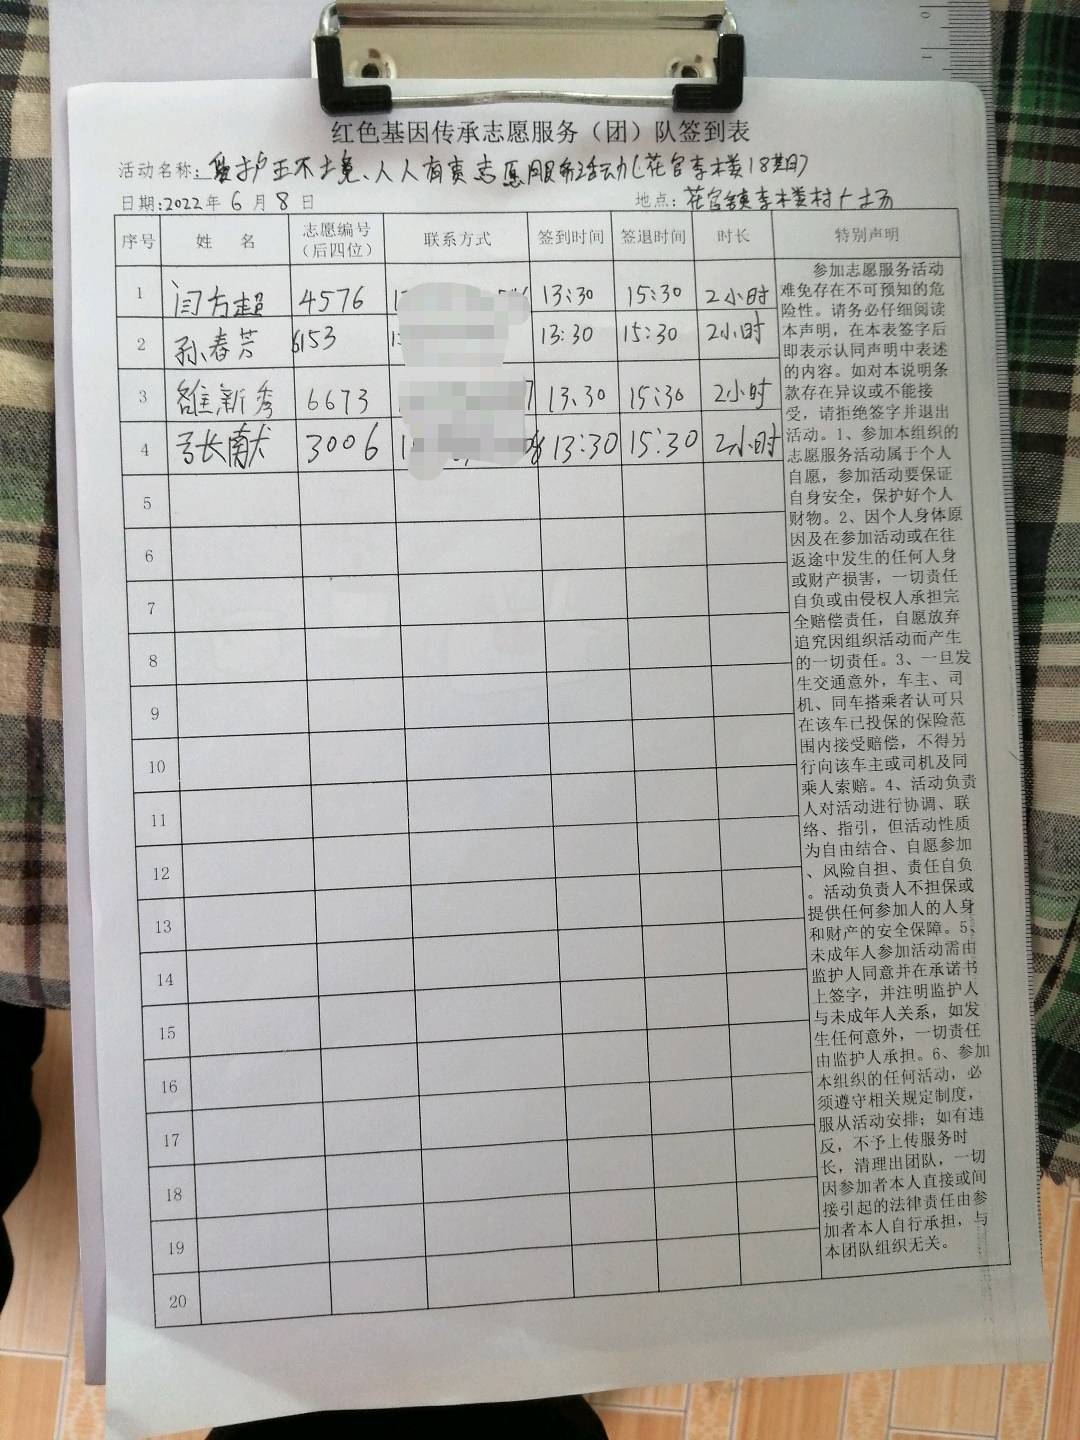 红色基因传承志愿服务（团）队签到表
活动名称：爱护环境、人人有责志愿服务活动（花官李楼18期）
日期:2022年6月8日 地点：花官镇李楼村广场
序号 姓 名 志愿编号（后四位） 联系方式 签到时间 签退时间 时长 特别声明
1 闫方超 4576 13:30 15:30 2小时
2 孙春芳 6153 13:30 15:30 2小时
3 新秀 6673 13:30 15:30 2小时
4 张 3006 13:30 15:30 2小时
5
6
7
8
9
10
11
12
13
14
15
16
17
18
19
20
参加志愿服务活动
难免存在不可预知的危
险性。请务必仔细阅读
本声明，在本表签字后
即表示认同声明中表述
的内容。如对本说明条
款存在异议或不能接
受，请拒绝签字并退出
活动。1、参加本组织的
志愿服务活动属于个人
自愿，参加活动要保证
自身安全，保护好个人
财物。2、因个人身体原
因及在参加活动或在往
返途中发生的任何人身
或财产损害，一切责任
自负或由侵权人承担完
全赔偿责任，自愿放弃
追究因组织活动而产生
的一切责任。3、一旦发
生交通意外，车主、司
机、同车搭乘者认可只
在该车已投保的保险范
围内接受赔偿，不得另
行向该车主或司机及同
乘人索赔。4、活动负责
人对活动进行协调、联
络、指引，但活动性质
为自由结合、自愿参加
、风险自担、责任自负
。活动负责人不担保或
提供任何参加人的人身
和财产的安全保障。5、
未成年人参加活动需由
监护人同意并在承诺书
上签字，并注明监护人
与未成年人关系，如发
生任何意外，一切责任
由监护人承担。6、参加
本组织的任何活动，必
须遵守相关规定制度，
服从活动安排；如有违
反，不予上传服务时
长，清理出团队，一切
因参加者本人直接或间
接引起的法律责任由参
加者本人自行承担，与
本团队组织无关。